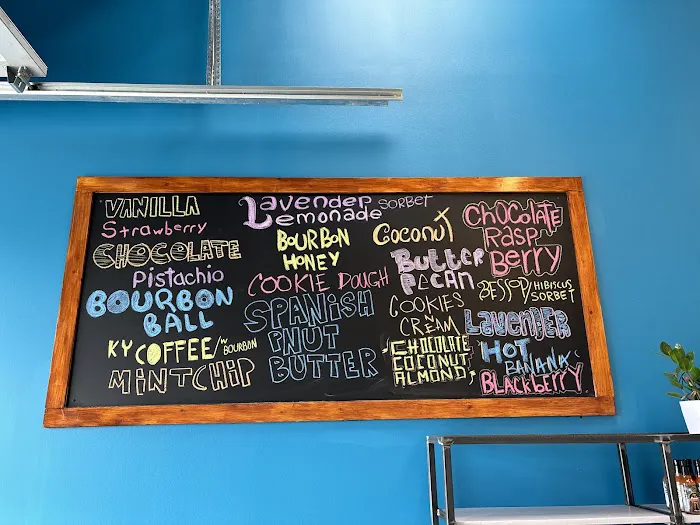 VANILLA
Strawberry
CHOCOLATE
Pistachio
BOURBON
BALL
KY COFFEE/W BOURBON
MINTCHIP
Lavender SORBET
Lemonade
BOURBON
HONEY
COOKIE DOUGH
SPANISH
PNUT
BUTTER
COCONUT
BUTTER
PECAN
COOKIES
N
CREAM
CHOCOLATE
COCONUT
ALMOND
CHOCOLATE
RASP
BERRY
HIBISCUS
SORBET
LAVENDER
HOT
BANANA
BLACKBERRY